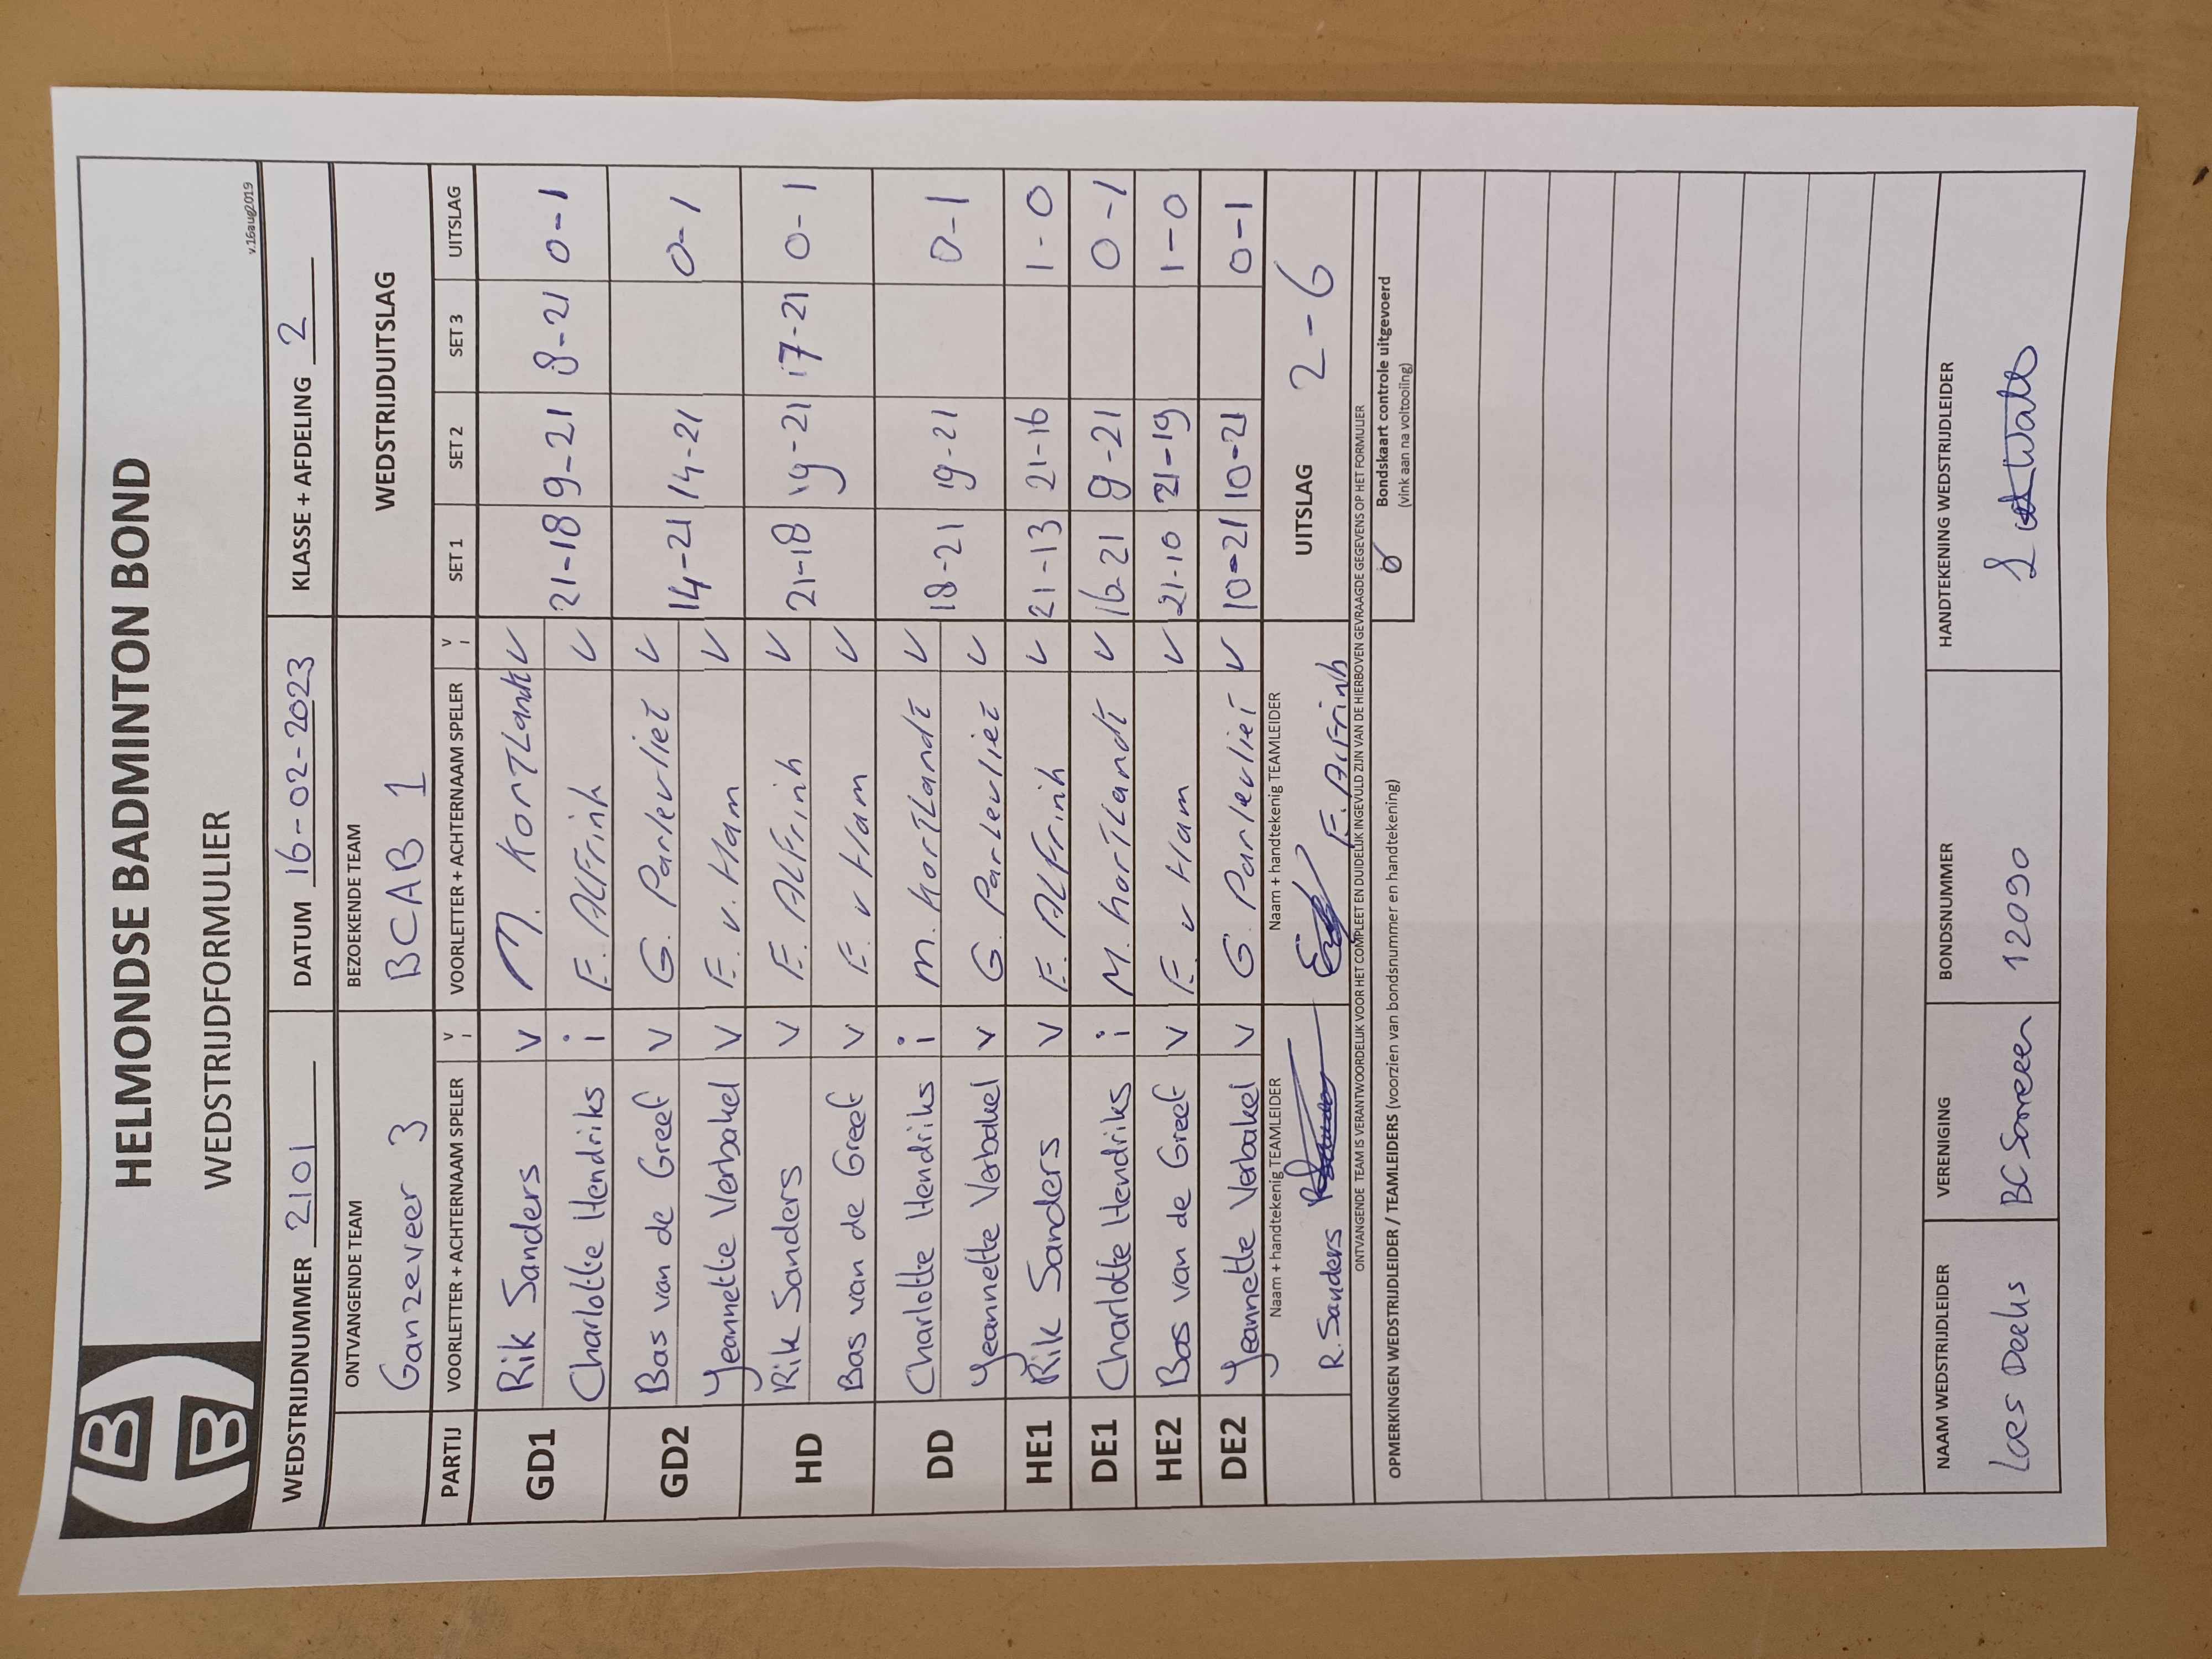 HELMONDSE BADMINTON BOND
WEDSTRIJDFORMULIER
v.16aug2019
WEDSTRIJDNUMMER 2101 DATUM 16-02-2023 KLASSE + AFDELING 2
ONTVANGENDE TEAM BEZOEKENDE TEAM WEDSTRIJDUITSLAG
Ganzeveer 3 BCAB 1
PARTIJ VOORLETTER + ACHTERNAAM SPELER V I VOORLETTER + ACHTERNAAM SPELER V I SET 1 SET 2 SET 3 UITSLAG
GD1 Rik Sanders v M. KorTLandt v 21-18 9-21 8-21 0-1
Charlotte Hendriks i E. ALFrink v
GD2 Bas van de Greef v G. Parlevliet v 14-21 14-21 0-1
Yeannette Verbakel v E. v. Ham v
HD Rik Sanders v E. ALFrink v 21-18 19-21 17-21 0-1
Bas van de Greef v E. v Ham v
DD Charlotte Hendriks i M. KorTLandt v 18-21 19-21 0-1
Yeannette Verbakel v G. Parlevliet v
HE1 Rik Sanders v E. ALFrink v 21-13 21-16 1-0
DE1 Charlotte Hendriks i M. KorTLandt v 16-21 9-21 0-1
HE2 Bas van de Greef v E. v Ham v 21-10 21-19 1-0
DE2 Yeannette Verbakel v G. Parlevliet v 10-21 10-21 0-1
Naam + handtekenig TEAMLEIDER Naam + handtekenig TEAMLEIDER UITSLAG 2-6
R. Sanders E. ALFrink
ONTVANGENDE TEAM IS VERANTWOORDELIJK VOOR HET COMPLEET EN DUIDELIJK INGEVULD ZIJN VAN DE HIERBOVEN GEVRAAGDE GEGEVENS OP HET FORMULIER
OPMERKINGEN WEDSTRIJDLEIDER / TEAMLEIDERS (voorzien van bondsnummer en handtekening) Bondskaart controle uitgevoerd
(vink aan na voltooiing)
NAAM WEDSTRIJDLEIDER VERENIGING BONDSNUMMER HANDTEKENING WEDSTRIJDLEIDER
Loes Deeks BC Someren 12090